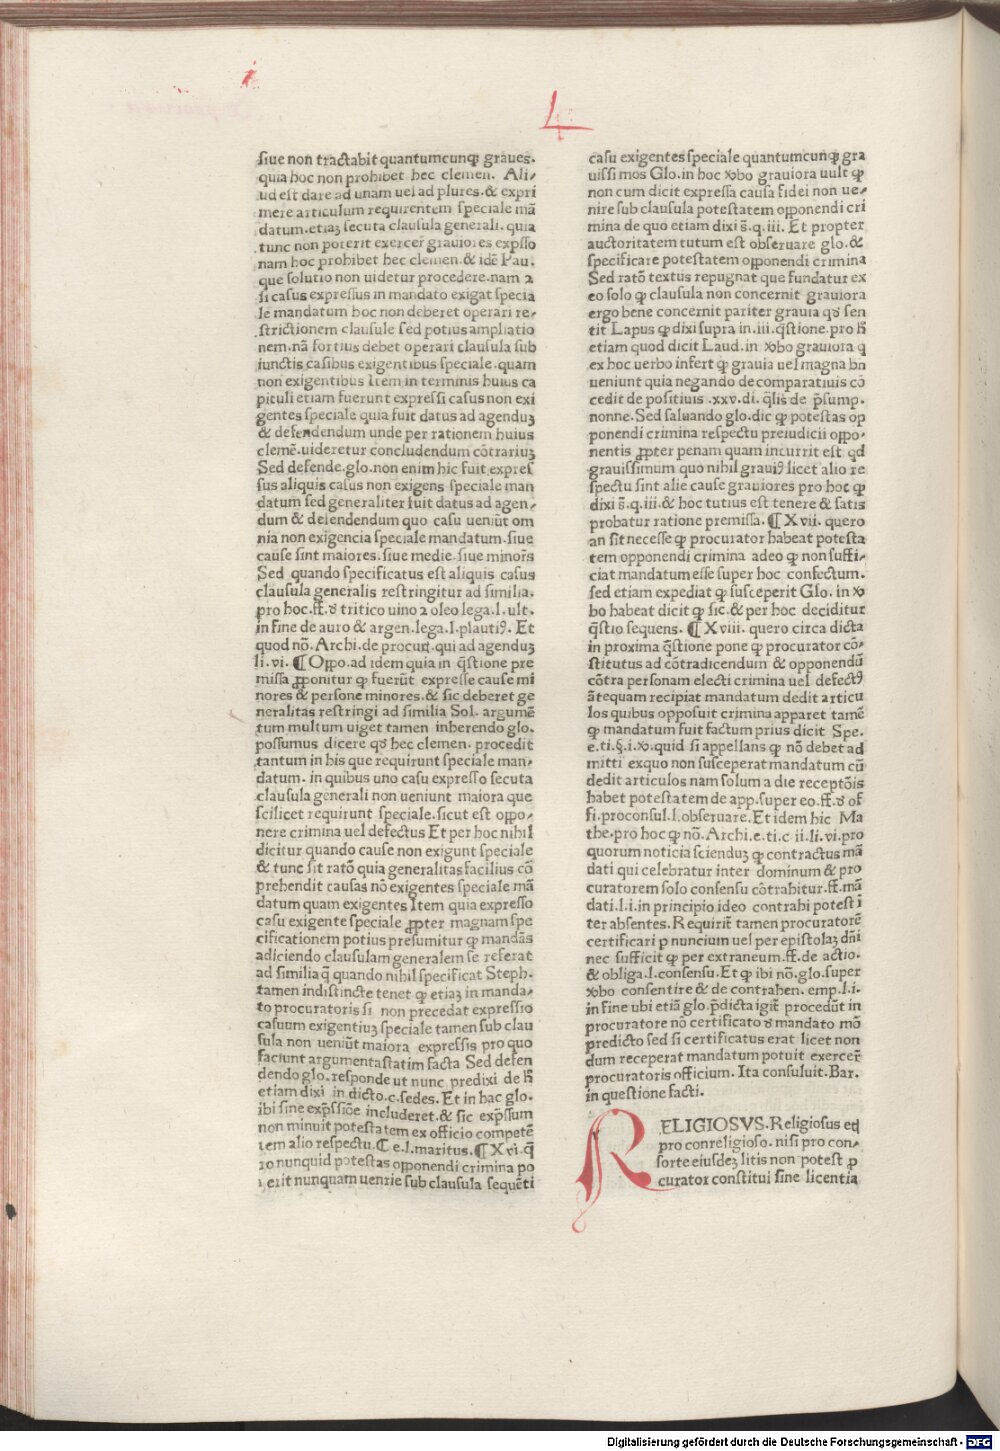 L
siue non tractabit quantumcunqꝫ graues.
quia hoc non prohibet hec clemen. Ali/
ud est dare ad unam uel ad plures.& expri
mere articulum requirentem speciale mā
datum.etiaꝫ secuta clausula generali.quia
tunc non poterit exercer̄ grauiores exp̄sso
nam hoc prohibet hec clemen.& idē Pau.
que solutio non uidetur procedere.nam ⁊
si casus expressus in mandato exigat specia
le mandatum hoc non deberet operari re/
strictionem clausule sed potius ampliatio
nem.nā fortius debet operari clausula sub
iunctis casibus exigentibus speciale.quam
non exigentibus Item in terminis huius ca
pituli etiam fuerunt expressi casus non exi
gentes speciale quia fuit datus ad agenduꝫ
& defendendum unde per rationem huius
clemē.uideretur concludendum cōtrariuꝫ
Sed defende.glo.non enim hic fuit expres
sus aliquis casus non exigens speciale man
datum sed generaliter fuit datus ad agen/
dum & defendendum quo casu ueniūt om
nia non exigencia speciale mandatum.siue
cause sint maiores.siue medie.siue minor̄s
Sed quando specificatus est aliquis casus
clausula generalis restringitur ad similia.
pro hoc.ff.ꝺ tritico uino ⁊ oleo lega.l.ult.
in fine de auro & argen.lega.l.plautiꝰ. Et
quod nō. Archi.de procur̄.qui ad agenduꝫ
li.vi. ¶ Oppo.ad idem quia in q̄stione pre
missa ꝓponitur ꝙ fuerūt expresse cause mi
nores & persone minores.& sic deberet ge
neralitas restringi ad similia Sol. argumē
tum multum uiget tamen inherendo glo.
possumus dicere qꝺ hec clemen. procedit
tantum in his que requirunt speciale man/
datum. in quibus uno casu expresso secuta
clausula generali non ueniunt maiora que
scilicet requirunt speciale.sicut est oppo/
nere crimina uel defectus Et per hoc nihil
dicitur quando cause non exigunt speciale
& tunc sit ratō quia generalitas facilius cō
prehendit causas nō exigentes speciale mā
datum quam exigentes Item quia expresso
casu exigente speciale ꝓpter magnam spe
cificationem potius presumitur ꝙ mandās
adiciendo clausulam generalem se referat
ad similia q̄ quando nihil specificat Steph.
tamen indistincte tenet ꝙ etiaꝫ in manda/
to procuratoris si non precedat expressio
casuum exigentiuꝫ speciale tamen sub clau
sula non ueniūt maiora expressis pro quo
faciunt argumenta statim facta Sed defen
dendo glo.responde ut nunc predixi de h̄
etiam dixi in dicto.c.sedes. Et in hac glo.
ibi sine exp̄ssiōe includeret.& sic exp̄ssum
non minuit potestatem ex officio competē
tem alio respectu.C e.l.maritus.¶ XVi.q̄
ro nunquid potestas opponendi crimina po
terit nunquam uenrie sub clausula sequēti
casu exigentes speciale quantumcunqꝫ gra
uissi mos Glo.in hoc ꝟbo grauiora uult ꝙ
non cum dicit expressa causa fidei non ue/
nire sub clausula potestatem opponendi cri
mina de quo etiam dixi s̄.q.iii. Et propter
auctoritatem tutum est obseruare glo.&
specificare potestatem opponendi crimina
Sed ratō textus repugnat que fundatur ex
eo solo ꝙ clausula non concernit grauiora
ergo bene concernit pariter grauia qꝺ sen
tit Lapus ꝙ dixi supra in.iii.q̄stione.pro h̄
etiam quod dicit Laud.in ꝟbo grauiora q
ex hoc uerbo infert ꝙ grauia uel magna bn̄
ueniunt quia negando de comparatiuis cō
cedit de positiuis .xxv.di.q̄lis de p̄sump.
nonne. Sed saluando glo.dic ꝙ potestas op
ponendi crimina respectu preiudicii oppo/
nentis ꝓpter penam quam incurrit est qꝺ
grauissimum quo nihil grauiꝰ licet alio re
spectu sint alie cause grauiores pro hoc ꝙ
dixi s̄.q.iii.& hoc tutius est tenere & satis
probatur ratione premissa. ¶ Xvii. quero
an sit necesse ꝙ procurator habeat potesta
tem opponendi crimina adeo ꝙ non suffi/
ciat mandatum esse super hoc confectum.
sed etiam expediat ꝙ susceperit Glo. in ꝟ
bo habeat dicit ꝙ sic.& per hoc deciditur
q̄stio sequens. ¶ Xviii. quero circa dicta
in proxima q̄stione pone ꝙ procurator cō/
stitutus ad cōtradicendum & opponendū
cōtra personam electi crimina uel defectꝰ
ātequam recipiat mandatum dedit articu
los quibus opposuit crimina apparet tamē
ꝙ mandatum fuit factum prius dicit Spe.
e.ti.§.i.ꝟ.quid si appellans ꝙ nō debet ad
mitti exquo non susceperat mandatum cū
dedit articulos nam solum a die receptōis
habet potestatem de app.super eo.ff.ꝺ of
fi.proconsul.l.obseruare. Et idem hic Ma
the.pro hoc ꝙ nō. Archi.e.ti.c ii.li.vi.pro
quorum noticia sciendꝫ ꝙ contractus mā
dati qui celebratur inter dominum & pro
curatorem solo consensu cōtrahitur.ff.mā
dati.l.i.in principio.ideo contrahi potest ī
ter absentes. Requirit̄ tamen procuratorē
certificari ꝑ nuncium uel per epistolaꝫ dn̄i
nec sufficit ꝙ per extraneum.ff.de actio.
& obliga.l.consensu. Et ꝙ ibi nō.glo.super
ꝟbo consentire & de contrahen. emp.l.i.
in fine ubi etiā glo.p̄dicta igit̄ procedūt in
procuratore nō certificato ꝺ mandato mō
predicto sed si certificatus erat licet non
dum receperat mandatum potuit exercer̄
procuratoris officium. Ita consuluit. Bar.
in questione facti.
RELIGIOSVS. Religiosus etiā
pro conreligioso. nisi pro con/
sorte eiusdeꝫ litis non potest ꝓ
curator constitui sine licentia
Digitalisierung gefördert durch die Deutsche Forschungsgemeinschaft - DFG